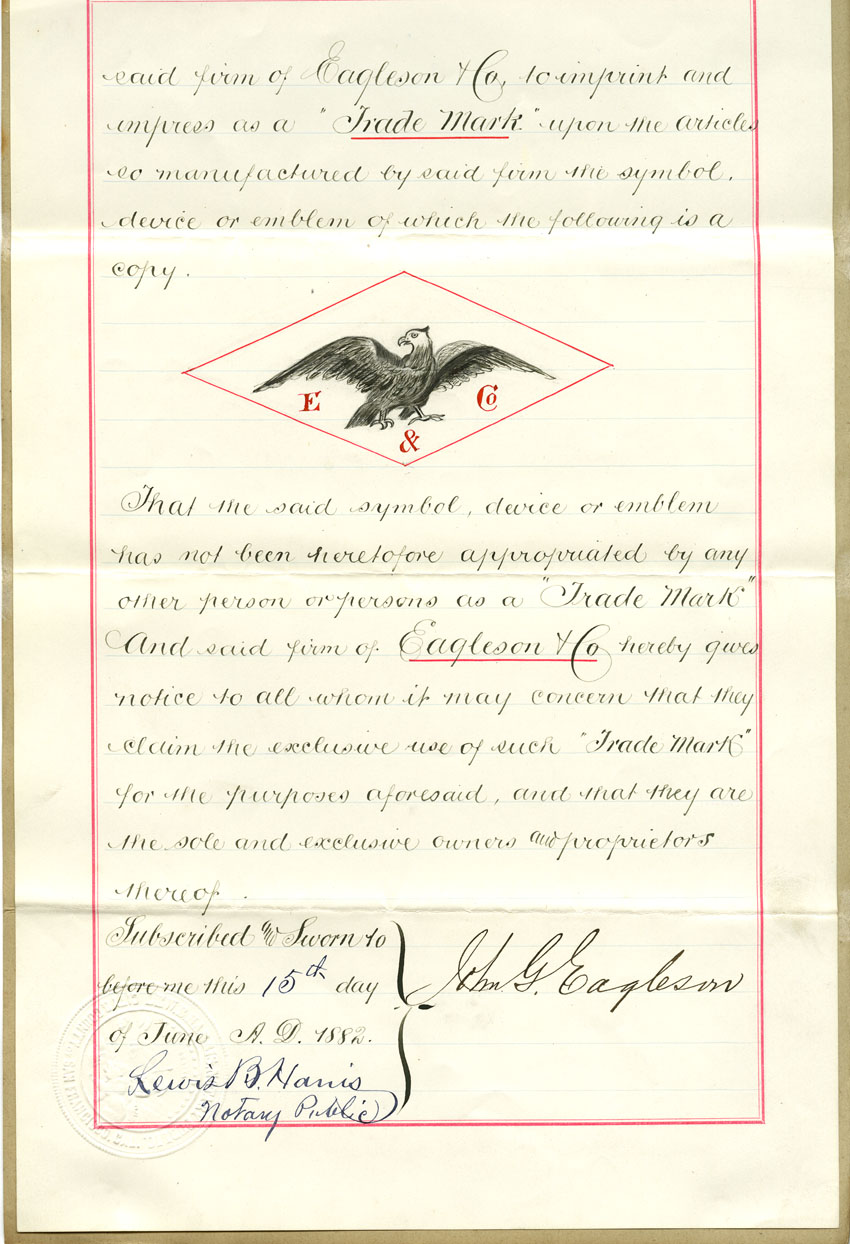 said firm of Eagleson & Co, to imprint and
impress as a "Trade Mark." upon the articles
so manufactured by said firm the symbol,
device or emblem of which the following is a
copy.
E & Co
That the said symbol, device or emblem
has not been heretofore appropriated by any
other person or persons as a "Trade Mark"
And said firm of Eagleson & Co hereby gives
notice to all whom it may concern that they
claim the exclusive use of such "Trade Mark"
for the purposes aforesaid, and that they are
the sole and exclusive owners and proprietors
thereof.
Subscribed and Sworn to
before me this 15th day
of June A.D. 1882.
Lewis B. Harris
Notary Public
John G. Eagleson